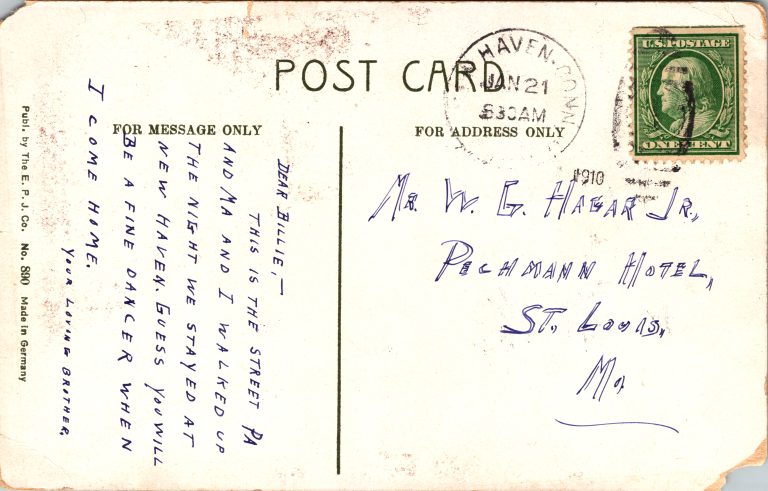 POST CARD
HAVEN. CONN
JAN 21
830AM
1910
U.S. POSTAGE
ONE CENT
FOR MESSAGE ONLY
FOR ADDRESS ONLY
DEAR BILLIE,—
THIS IS THE STREET PA
AND MA AND I WALKED UP
THE NIGHT WE STAYED AT
NEW HAVEN. GUESS YOU WILL
BE A FINE DANCER WHEN
I COME HOME.
YOUR LOVING BROTHER,
MR. W. G. HAGAR JR.,
PECHMANN HOTEL,
ST. LOUIS,
MO,
Publ. by The E. P. J. Co. No. 890 Made in Germany